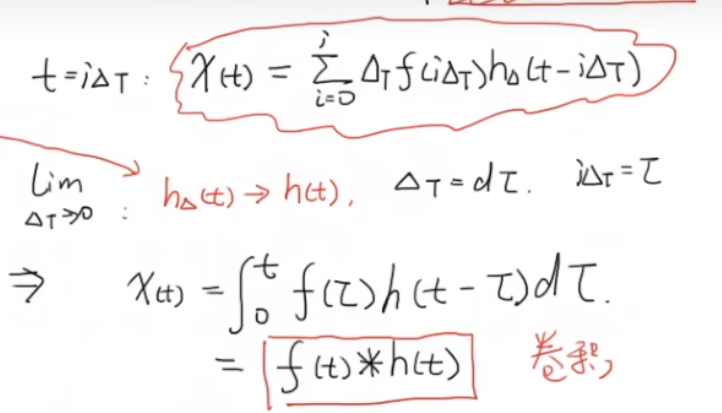 t=iΔT: x(t) = \sum_{i=0}^{i} Δ_T f(iΔT) h_Δ(t-iΔT)
lim_{ΔT→0}: h_Δ(t)→h(t), ΔT=dτ. iΔT=τ
⇒ x(t) = ∫_0^t f(τ)h(t-τ)dτ.
= f(t)*h(t) 卷积